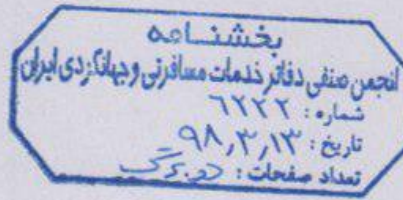 بخشنامه
انجمن صنفی دفاتر خدمات مسافرتی و جهانگردی ایران
شماره : ۶۲۲۲
تاریخ : ۹۸٫۳٫۱۳
تعداد صفحات : دو برگ